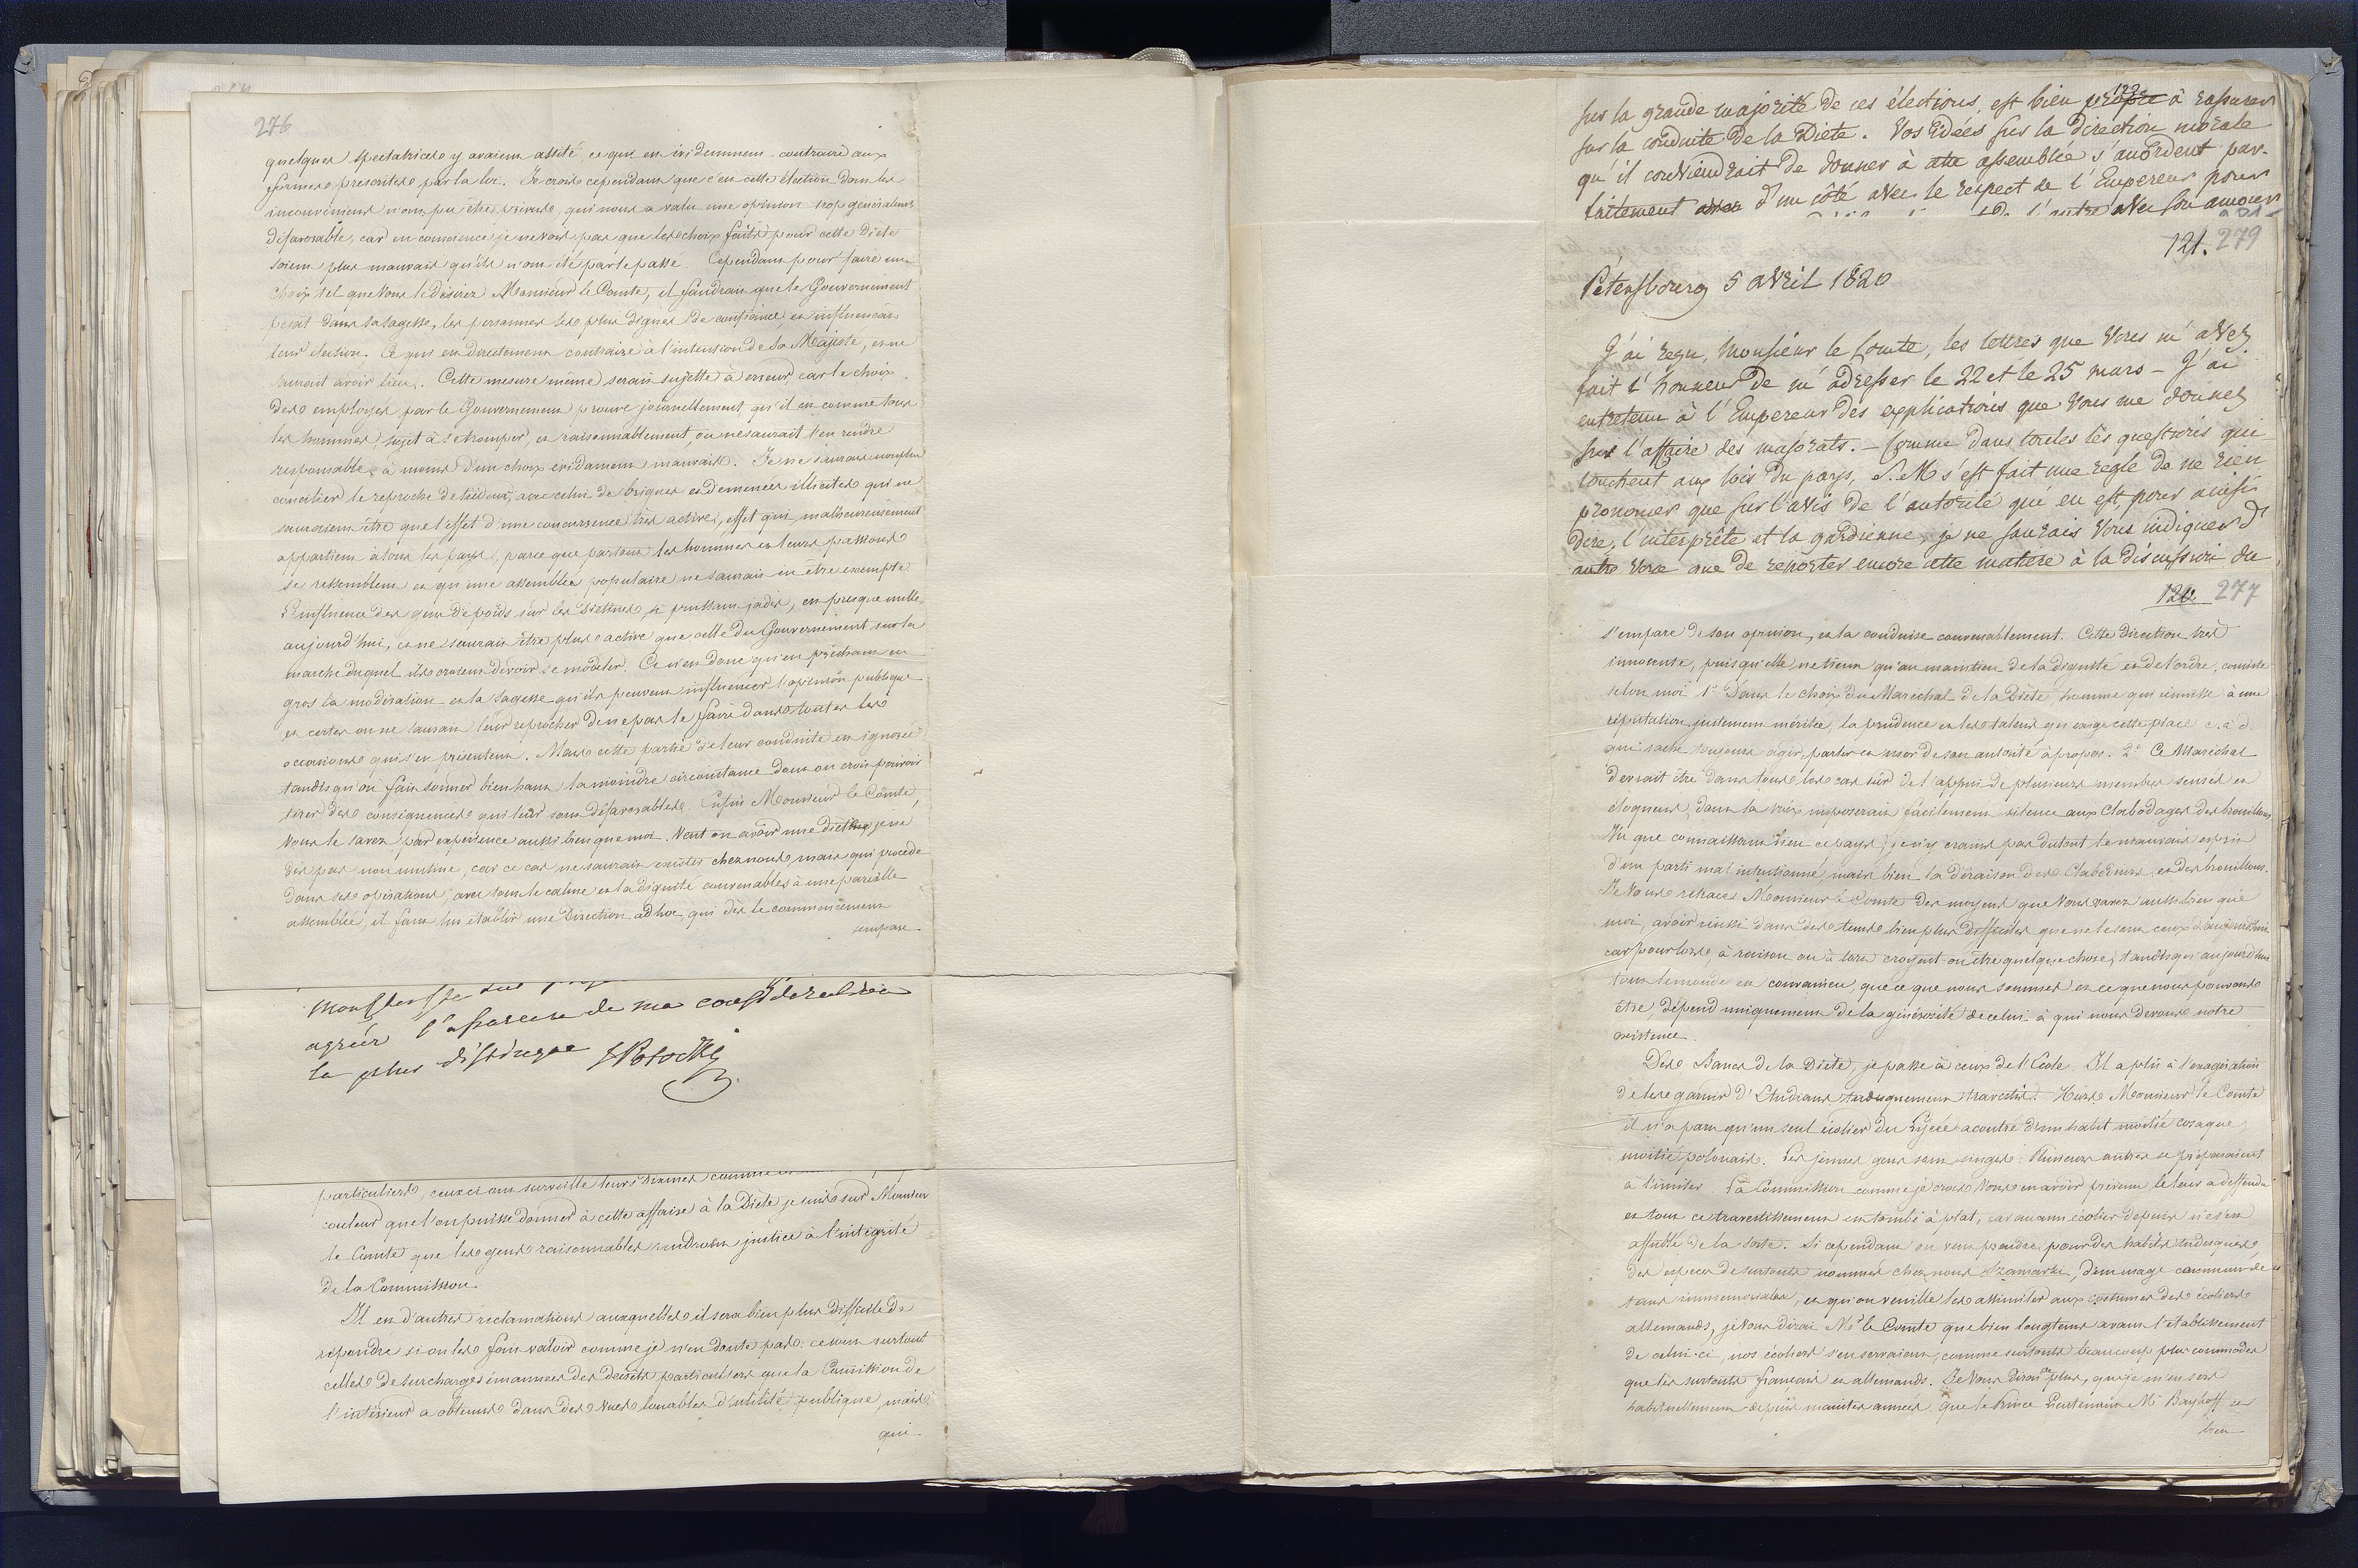 276
quelques spectatrices y avaient assisté, ce qui est évidemment contraire aux
formes prescrites par la loi. Je crois cependant que c'est cette élection dont les
inconvéniens n'ont pu être prévus, qui nous a valu une opinion trop généralement
défavorable, car en conscience je ne vois pas que les choix faits pour cette Diete
soient plus mauvais qu'ils n'ont été par le passé. Cependant pour faire un
choix tel que Vous le désirez Monsieur le Comte, il faudrait que le Gouvernement
pesât dans sa sagesse, les personnes les plus dignes de confiance, et influençât
leur election. Ce qui est directement contraire à l'intention de Sa Majesté, et ne
saurait avoir lieu. Cette mesure même serait sujette à erreur, car le choix
des employés par le Gouvernement prouve journellement qu'il est comme tous
les hommes sujet à se tromper, et raisonnablement, on ne saurait l'en rendre
responsable, à moins d'un choix évidament mauvais. Je ne saurais non plus
concilier le reproche de tiédeur, avec celui de brigues et de menées illicites qui ne
sauraient être que l'effet d'une concurrence très active, effet qui malheureusement
appartient à tous les pays, parce que partout les hommes et leurs passions
se ressemblent et qu'une assemblée populaire ne saurait en être exempte.
L'influence des gens de poids sur les Dietines, si puissant jadis, est presque nulle
aujourd'hui, et ne saurait être plus active que celle du Gouvernement sur la
marche duquel ils croient devoir se modéler. Ce n'est donc qu'en prêchant en
gros la modération et la sagesse qu'ils peuvent influencer l'opinion publique
et certes on ne saurait leur reprocher de ne pas le faire dans toutes les
occasions qui s'en présentent. Mais cette partie de leur conduite est ignorée
tandis qu'on fait sonner bien haut la moindre circonstance dont on croit pouvoir
tirer des conséquences qui leur sont défavorables. Enfin Monsieur le Comte,
Vous le savez par expérience aussi bien que moi. Veut on avoir une diete je ne
dis pas non mutine, car ce cas ne saurait exister chez nous mais qui procède
dans ses opérations, avec tout le calme et la dignité convenables à une pareille
assemblée, il faut lui établir une Direction ad hoc, qui dès le commencement
s'empare
agréer l'assurance de ma considération
la plus distinguée S Potocki
particuliers, ceux ci ont surveillé leurs
couleur que l'on puisse donner à cette affaire à la Diete je suis sur Monsieur
le Comte que les gens raisonnables rendront justice à l'intégrité
de la Commission.
Il est d'autres reclamations auxquelles il sera bien plus difficile de
répondre si on les fait valoir comme je n'en doute pas: ce sont surtout
celles de surcharges émanées des decrets particuliers que la Commission de
l'intérieur a obtenus dans des vues louables d'utilité publique, mais
qui
122
sur la grande majorité de ces élections, est bien propre à rassurer
sur la conduite de la Diete. Vos idées sur la direction morale
qu'il conviendrait de donner à cette assemblée s'accordent par-
faitement d'un côté avec le respect de l'Empereur pour
de l'autre avec son amour
121. 279
Pétersbourg 5 avril 1820
J'ai reçu, Monsieur le Comte, les lettres que Vous m'avez
fait l'honneur de m'adresser le 22 et le 25 mars – J'ai
entretenu à l'Empereur des explications que Vous me donnez
sur l'affaire des majorats. – Comme dans toutes les questions qui
touchent aux lois du pays, S. M. s'est fait une règle de ne rien
prononcer que sur l'avis de l'autorité qui en est, pour ainsi
dire, l'interprète et la gardienne, je ne saurais Vous indiquer d'
autre voie que de reporter encore cette matière à la discussion du
120 277
s'empare de son opinion, et la conduise convenablement. Cette Direction très
innocente, puisqu'elle ne tient qu'au maintien de la dignité et de l'ordre, consiste
selon moi 1° Dans le choix du Maréchal de la Diete homme qui réunisse à une
réputation justement méritée, la prudence et les talens qu'exige cette place c. à d.
qui sache toujours agir, parler et user de son autorité à propos. 2° Ce Maréchal
devrait être dans tous les cas sûr de l'appui de plusieurs membres sensés et
éloquens, dont la voix imposerait facilement silence aux Clabodages des brouillons,
Vu que connaissant bien ce pays, je n'y crains pas du tout le mauvais esprit
d'un parti mal intentionné, mais bien la déraison des Clabodeurs et des brouillons.
Je Vous retrace Monsieur le Comte des moyens que Vous savez aussi bien que
moi, avoir réussi dans des tems bien plus difficiles que ne le sont ceux d'aujourd'hui
car pour lors, à raison ou à tort croyait-on être quelque chose, tandis qu'aujourd'hui
tout le monde est convaincu, que ce que nous sommes et ce que nous pouvons
être, dépend uniquement de la générosité de celui à qui nous devons notre
existence.
Des Bancs de la Diete, je passe à ceux de l'Ecole. Il a plû à l'exagération
de les garnir d'Etudians tudesquement travestis. Hors Monsieur le Comte
il n'a paru qu'un seul écolier du Lycée acoutré d'un habit moitié cosaque,
moitié polonais. Les jeunes gens sont singes. Plusieurs autres se préparaient
à l'imiter. La Commission comme je crois Vous en avoir prévenu le leur a deffendu
et tout ce travestissement est tombé à plat, car aucun écolier depuis n'est
affublé de la sorte. Si cependant on veut prendre pour des habits tudesques,
des especes de surtouts nommés chez nous Szamarki, d'un usage commun de
tems immemorables, et qu'on veuille les assimiler aux costumes des écoliers
allemands, je Vous dirai Mr le Comte que bien longtems avant l'établissement
de celui-ci, nos écoliers s'en servaient, comme surtouts beaucoup plus commodes
que les surtouts français et allemands. Je Vous dirai de plus, que je m'en sers
habituellement depuis maintes années, que le Prince Lieutenant Mr Baykoff se
bien